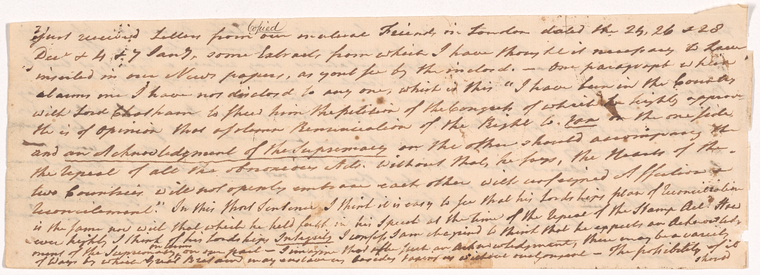 copied
I just received Letters from our mutual Friend in London dated the 24, 26 & 28
Decr & 4 & 7 Jany, some Extracts from which I have thought it necessary to have
inserted in our News papers, as you'l see by the inclosd. — One paragraph which
alarms me I have not disclosd to any one, which is this "I have been in the Country
with Lord Chatham to shew him the petition of the Congress of which he highly approves
He is of Opinion that a solemn Renunciation of the Right to tax on the one side,
and an Acknowledgment of the Supremacy on the other should accompany the
the repeal of all the obnoxious Acts. Without that, he says, the Hearts of the
two Countries will not openly embrace each other with unfeigned Affection &
Reconcilement" In this short Sentence I think it is easy to see that his Lordships plan of reconciliation
is the same now with that which he held forth in his Speech at the time of the repeal of the Stamp Act. How
ever highly I think of his Lordships Integrity I confess I am chagrind to think that he expects an Acknowledg
ment of the Supremacy on our part — I imagine that after such an Acknowledgment, there may be a variety
of Ways by which Great Britain may enslave us besides taxing us without our Consent — The possibility of it
shoud